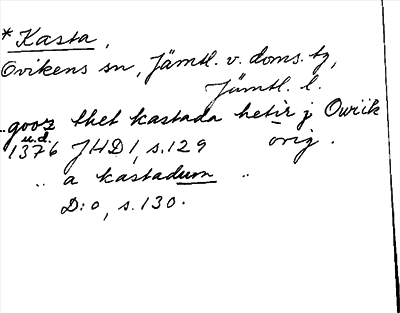 *Kasta,
Ovikens sn, Jämtl. v. doms. tg,
Jämtl. l.
..gooz thet kastada hetir j Owiik
u.d.
1376 JHD 1, s.129 orig.
.. a kastadum ..
D:o, s.130.